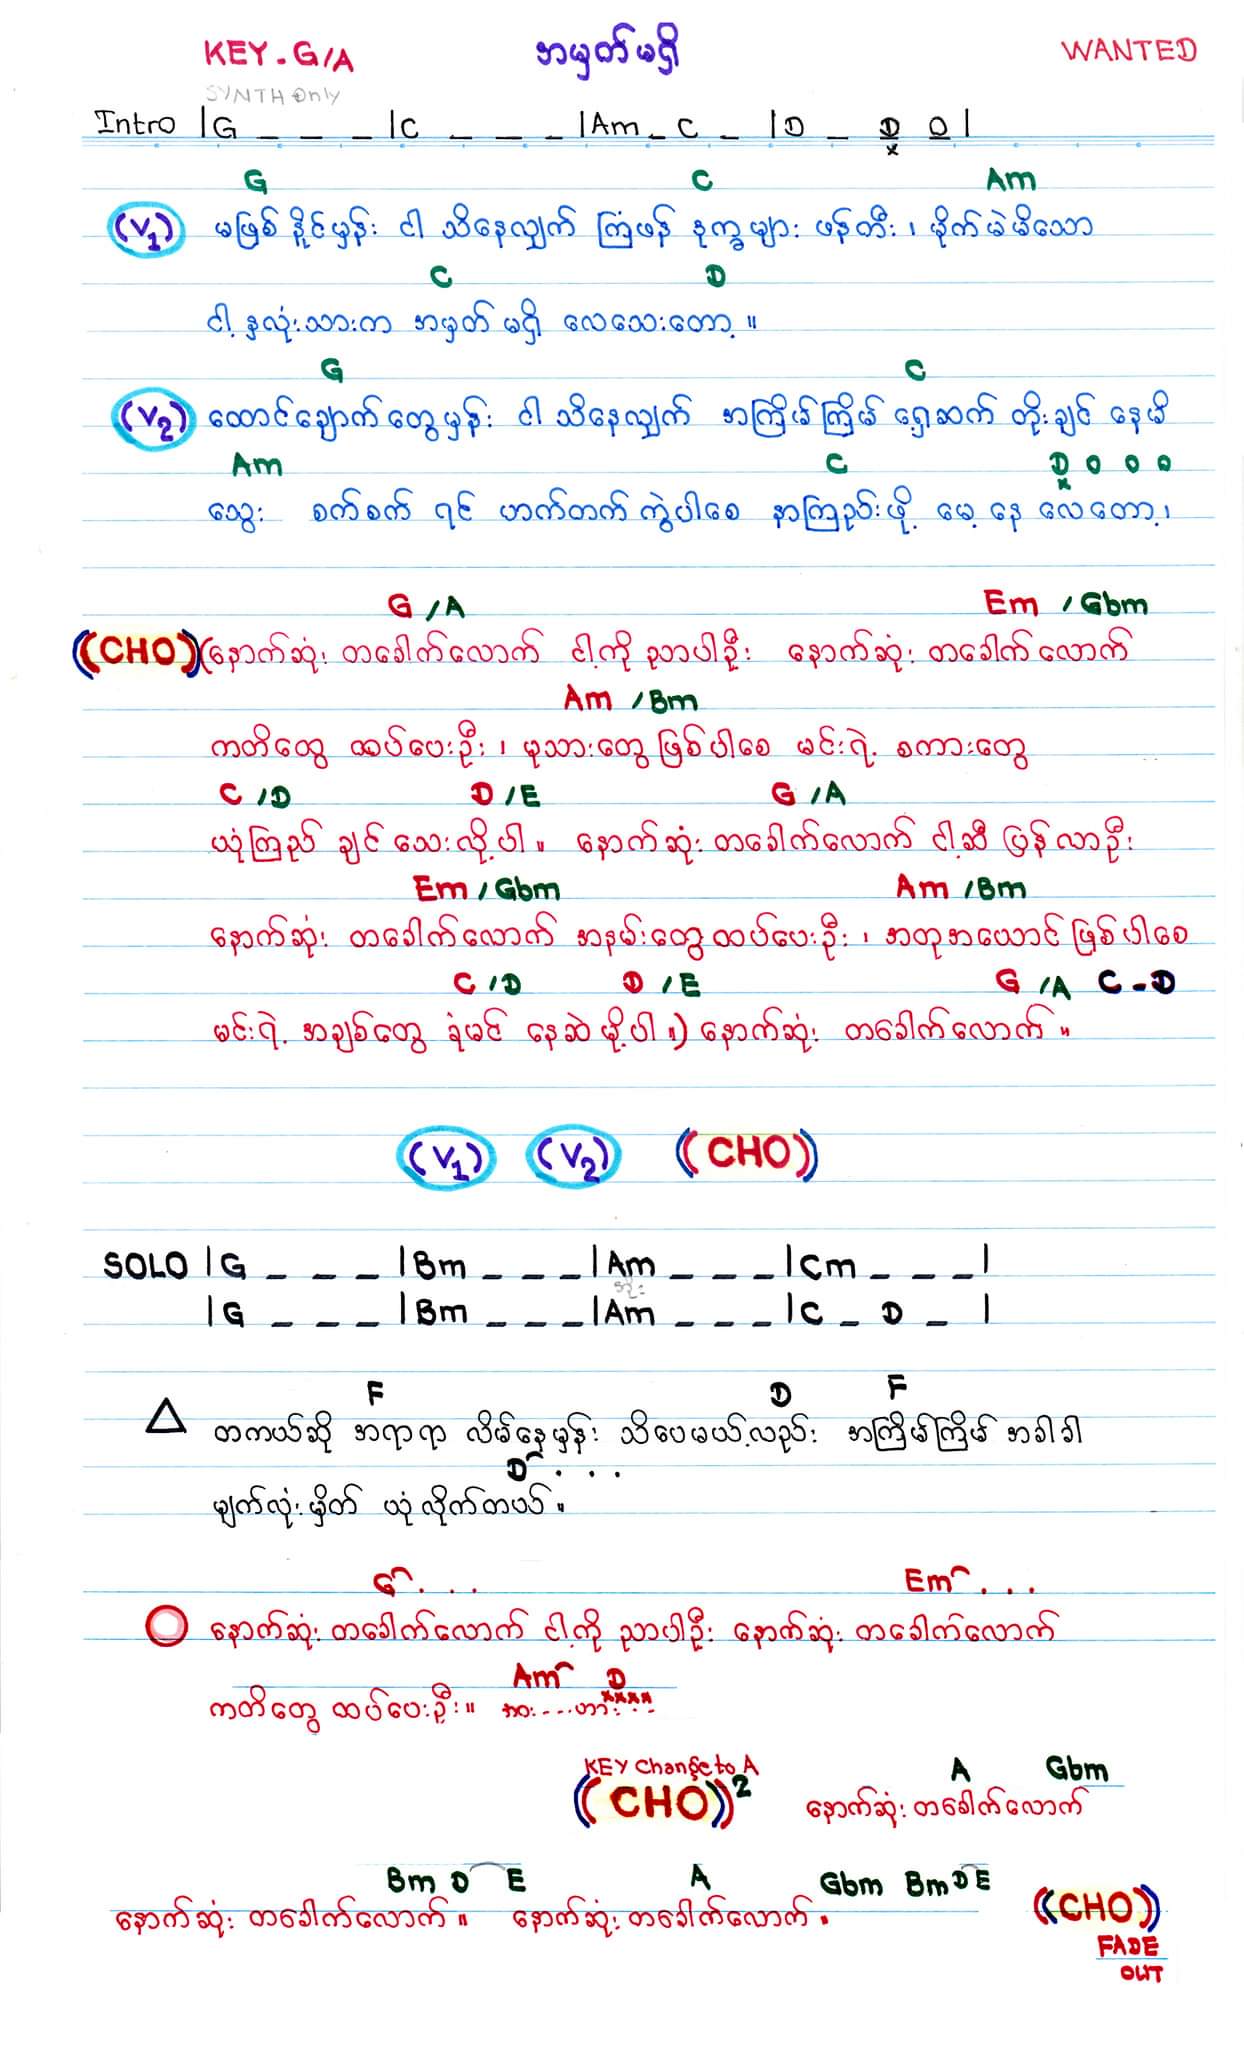 KEY - G/A အမှတ်မရှိ WANTED
SYNTH Only
Intro |G _ _ _ |C _ _ _ |Am _ C _ |D _ D D|
x
G C Am
(V1) မဖြစ်နိူင်မှန်း ငါ သိနေလျှက် ကြံဖန် ဒုက္ခများ ဖန်တီး ၊ မိုက်မဲမိသော
C D
ငါ့ နှလုံးသားက အမှတ် မရှိ လေသေးတော့ ။
G C
(V2) ထောင်ချောက်တွေမှန်း ငါ သိနေလျှက် အကြိမ်ကြိမ် ရှေ့ဆက် တိုးချင် နေမိ
Am C D o o o
x
သွေး စက်စက် ရင် ဟက်တက်ကွဲပါစေ နာကြည်းဖို့ မေ့ နေ လေတော့ ၊
G /A Em /Gbm
(CHO) (နောက်ဆုံး တခေါက်လောက် ငါ့ကို ညာပါဦး နောက်ဆုံး တခေါက်လောက်
Am /Bm
ကတိတွေ ထပ်ပေးဦး ၊ မုသားတွေ ဖြစ်ပါစေ မင်းရဲ့ စကားတွေ
C /D D /E G /A
ယုံကြည် ချင် သေးလို့ပါ ။ နောက်ဆုံး တခေါက်လောက် ငါ့ဆီ ပြန်လာဦး
Em /Gbm Am /Bm
နောက်ဆုံး တခေါက်လောက် အနမ်းတွေ ထပ်ပေးဦး ၊ အတုအယောင် ဖြစ်ပါစေ
C /D D /E G /A C - D
မင်းရဲ့ အချစ်တွေ ခုံမင် နေဆဲ မို့ပါ ။) နောက်ဆုံး တခေါက်လောက် ။
(V1) (V2) (CHO)
SOLO |G _ _ _ |Bm _ _ _ |Am _ _ _ |Cm _ _ _ |
|G _ _ _ |Bm _ _ _ |Am _ _ _ |C _ D _ |
F D F
တကယ်ဆို အရာရာ လိမ်နေမှန်း သိပေမယ့်လည်း အကြိမ်ကြိမ် အခါခါ
D . . .
မျက်လုံးမှိတ် ယုံလိုက်တယ် ။
G . . . Em . . .
နောက်ဆုံး တခေါက်လောက် ငါ့ကို ညာပါဦး နောက်ဆုံး တခေါက်လောက်
Am D
xxxx
ကတိတွေ ထပ်ပေးဦး ။
KEY Change to A A Gbm
(CHO)2 နောက်ဆုံး တခေါက်လောက်
Bm D E A Gbm Bm D E
နောက်ဆုံး တခေါက်လောက် ။ နောက်ဆုံး တခေါက်လောက် ။ (CHO)
FADE
OUT